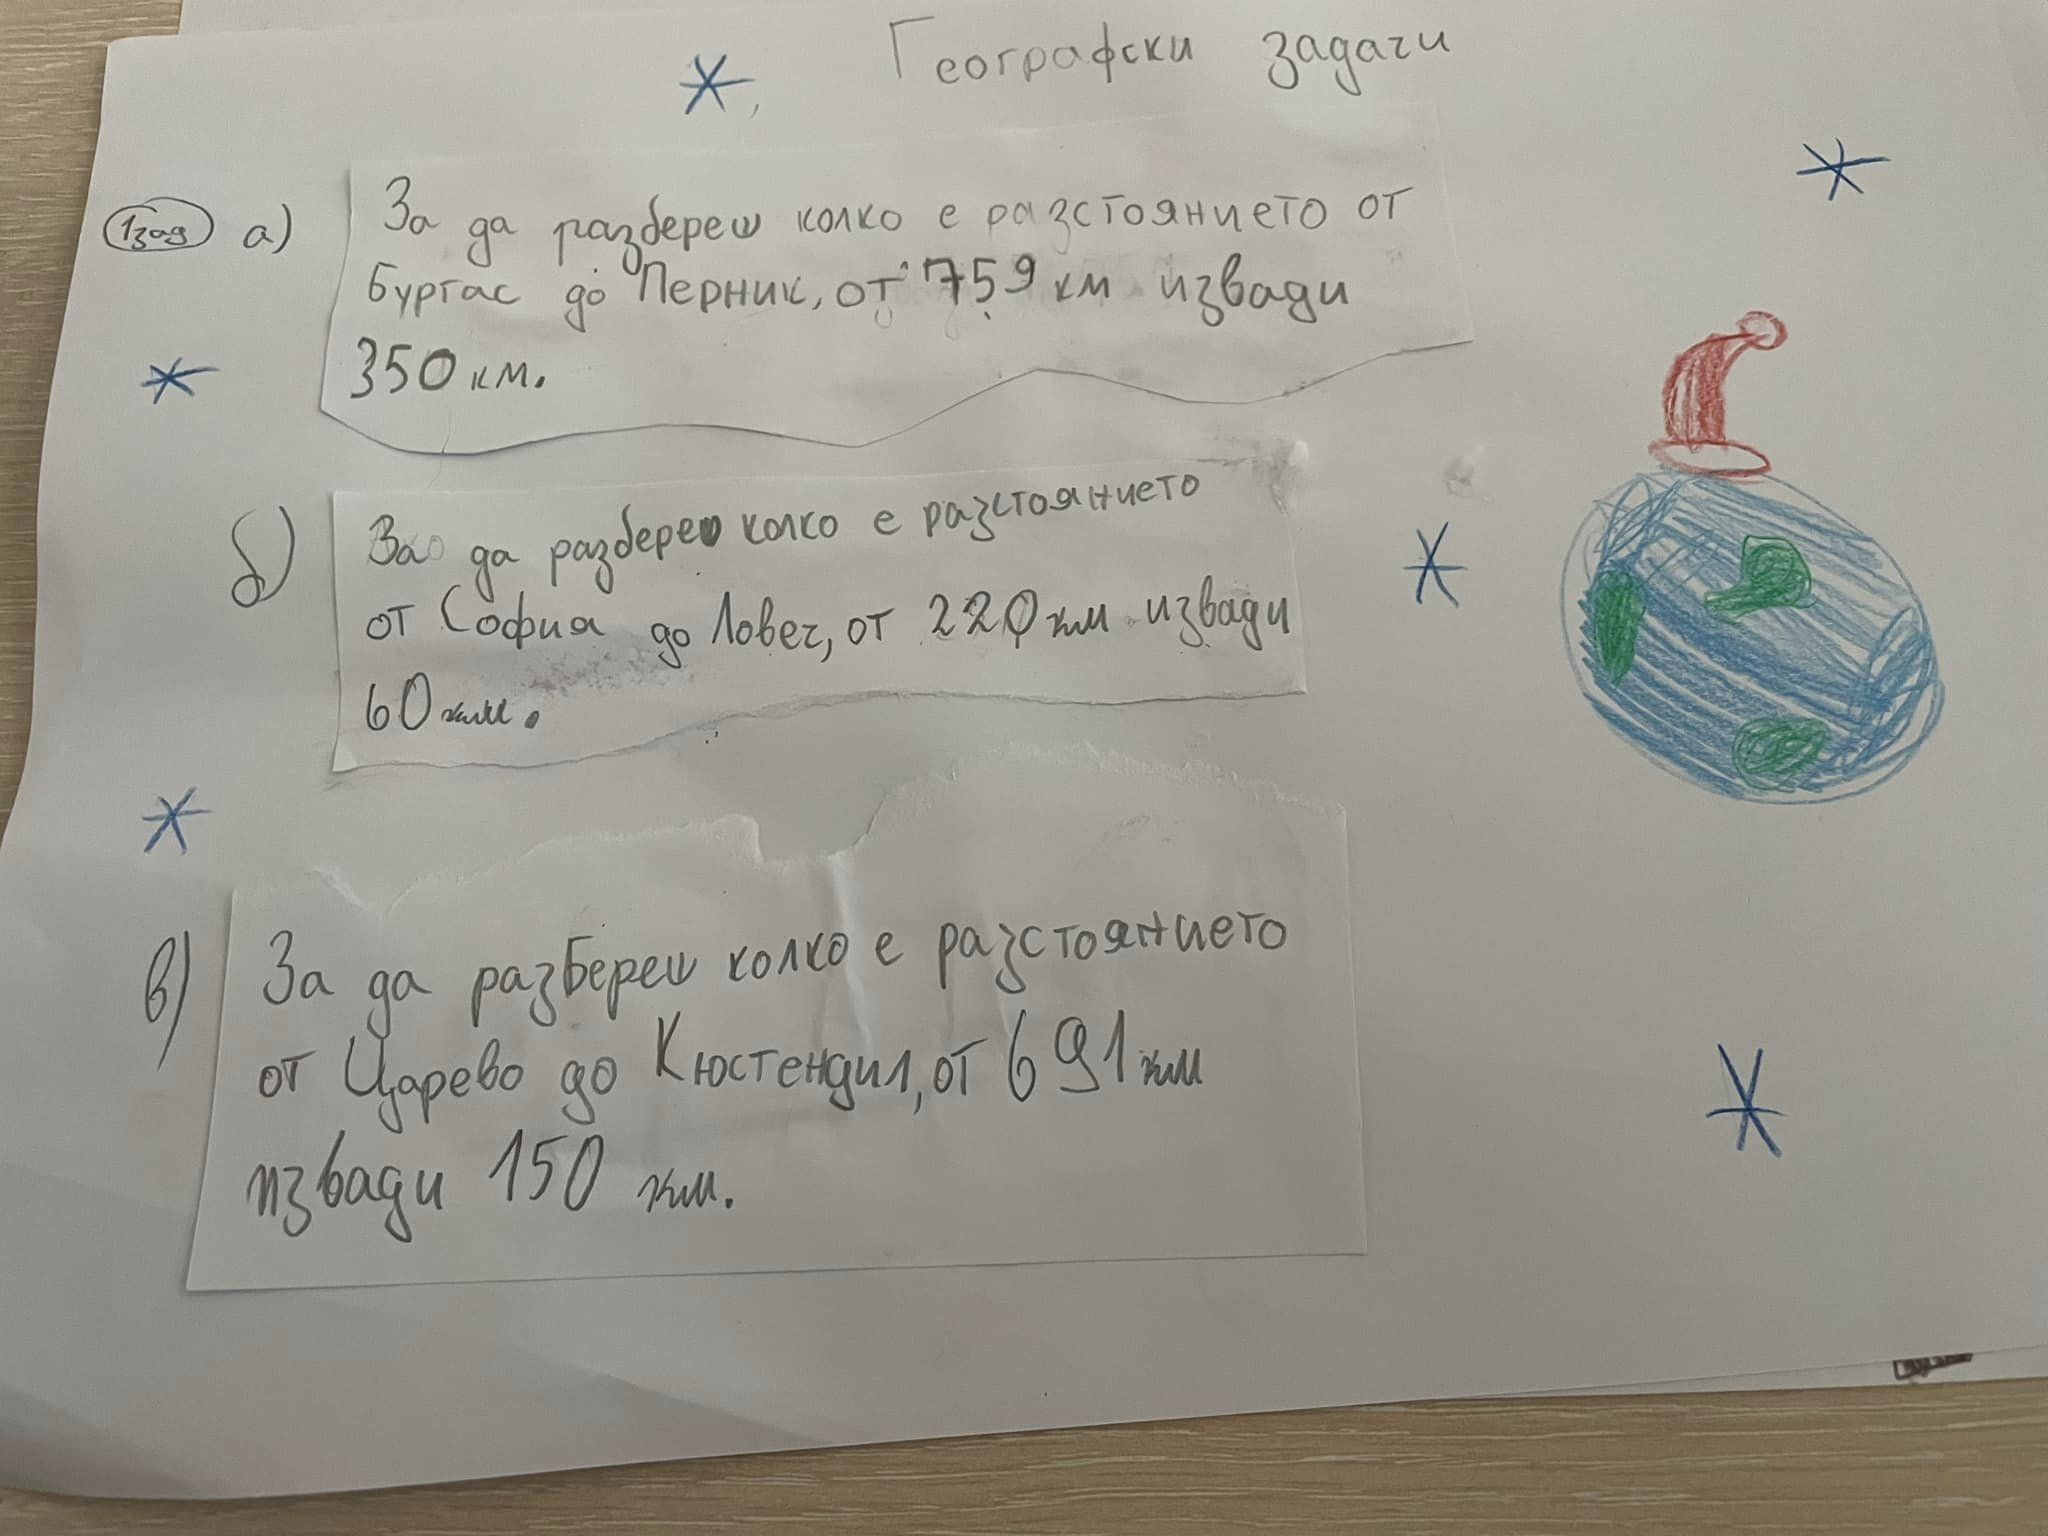 Географски задачи
1зад а) За да разбереш колко е разстоянието от
Бургас до Перник, от 759 км извади
350 км.
б) За да разбереш колко е разстоянието
от София до Ловеч, от 220 км извади
60 км.
в) За да разбереш колко е разстоянието
от Царево до Кюстендил, от 691 км
извади 150 км.